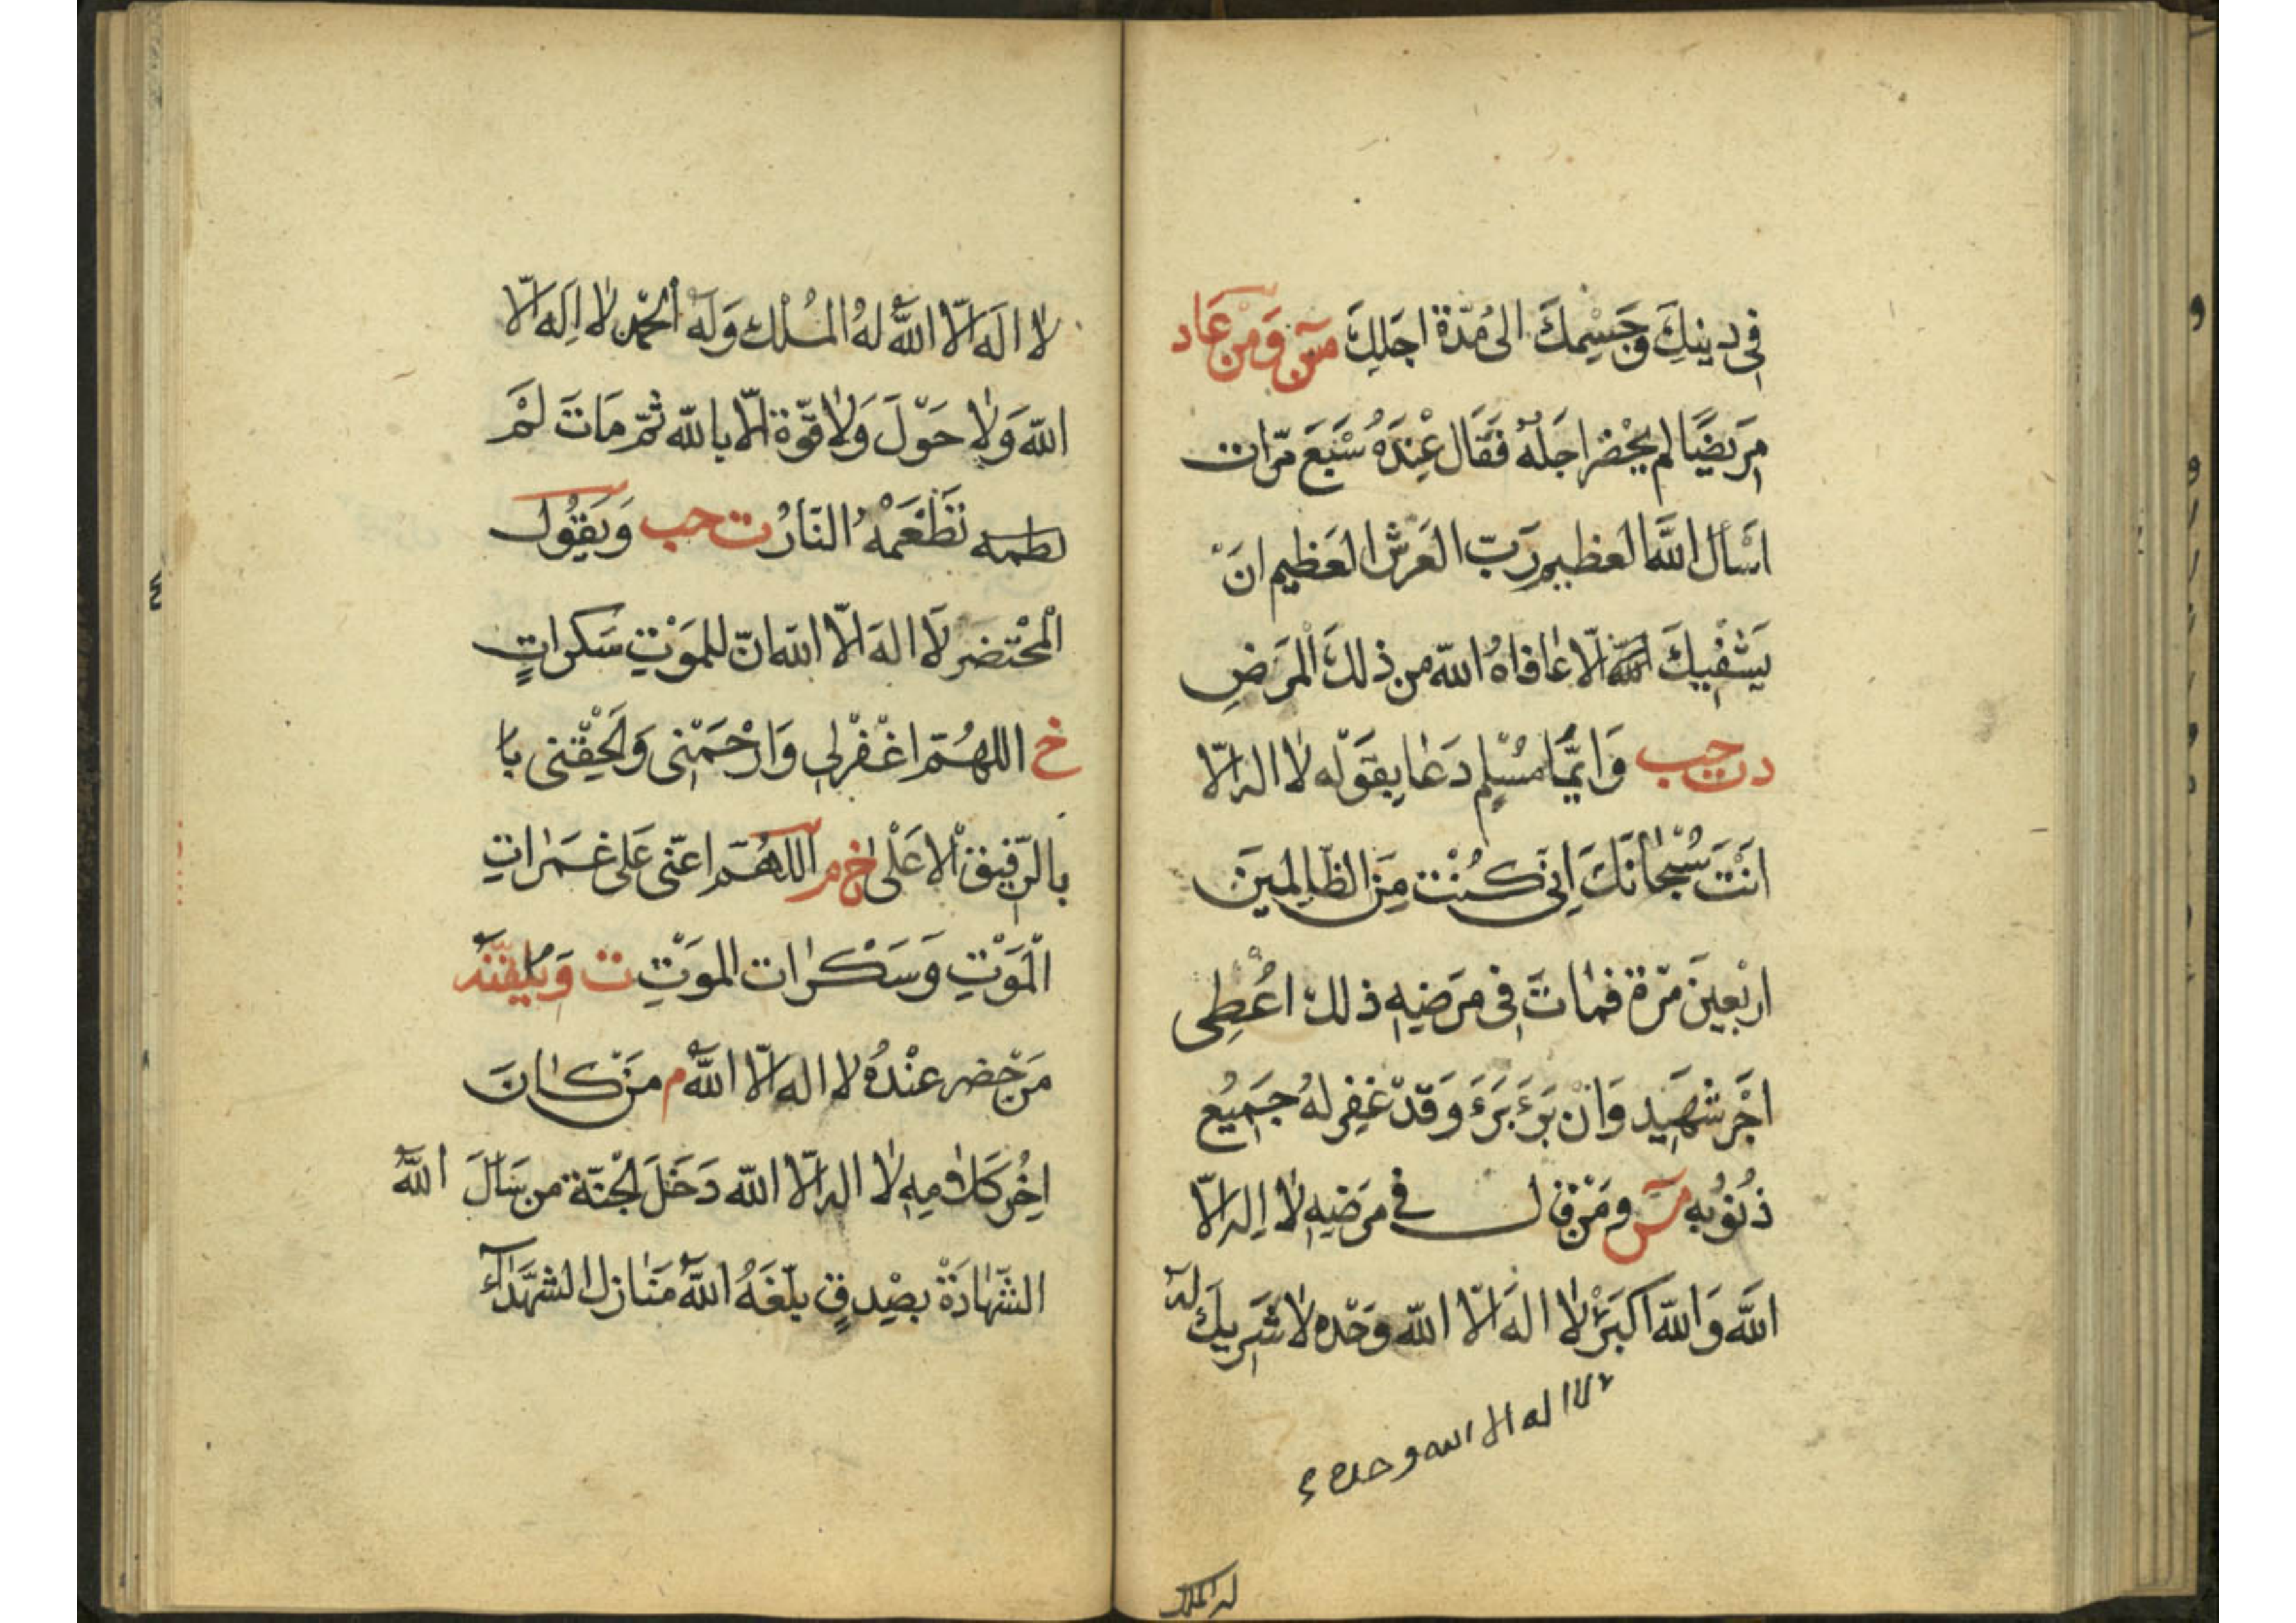 فِي دِينِكَ وَجِسْمِكَ الى مُدَّة اجَلِكَ مس وَمَنْ عَاد
مَرِيضًا لم يحْضر اجَلُهُ فَقَال عِنْدَهُ سَبْعَ مرّات
اسْال اللّهَ العظيم رَبّ العَرش العَظيم انَ
يَشْفِيكَ الّا عافاهُ اللّه من ذلكَ المرَضِ
د ت حب وَايّمَا مُسْلِم دَعَا بِقَوْلِه لا اله الّا
انْتَ سُبْحَانَكَ اِنِي كُنْت مِنَ الظَّالِمينَ
ارْبعِينَ مَرّة فمَاتَ فِي مرَضِهِ ذلكَ اعُطِى
اجْر شهَيِد وَانْ بَرِءَ بَرَءَ وَقَدْ غفِر لهُ جَمِيُع
ذُنُوُبِه مس ومَنْ قال في مرَضِهِ لا اِله الّا
اللّه وَاللّه اكبَرُ لا اله الّا اللّه وَحْدَه لا شَرِيكَ له
لا اله الا الله وحده
له الملك
لا اله الّا اللّهُ لهُ المُلْك وَلَهُ الْحَمْد لا اِلَه الّا
اللّه وَلا حَوْلَ وَلا قُوّة الّا بِاللّه ثُمّ مَاتَ لَمْ
تَطْعَمْهُ النّارُ ت حب وَيَقُول
الْمُحْتضَر لَا الهَ الّا اللّه انّ للمَوْتِ سَكراتٍ
خ اللهُمّ اغْفْرلِي وَارْحَمْنى وَالْحِقْنى با
بالرّفِيق الْاعَلْى خ م اللهُمّ اعنّى عَلى غمَراتِ
الْمَوْتِ وَسَكْرات الموَتِ ت وَيُلَقِّنهُ
مَنْ حَضر عنْدهُ لا اله الّا اللّهُ م مَنْ كانَ
اخِرُ كَلامِهِ لا اله الّا اللّه دَخَلَ الجْنّة م من سَالَ اللّهَ
الشّهَادَةْ بصِدقٍ بلّغَهُ اللّهُ مَنَازل الشهَّدَاء